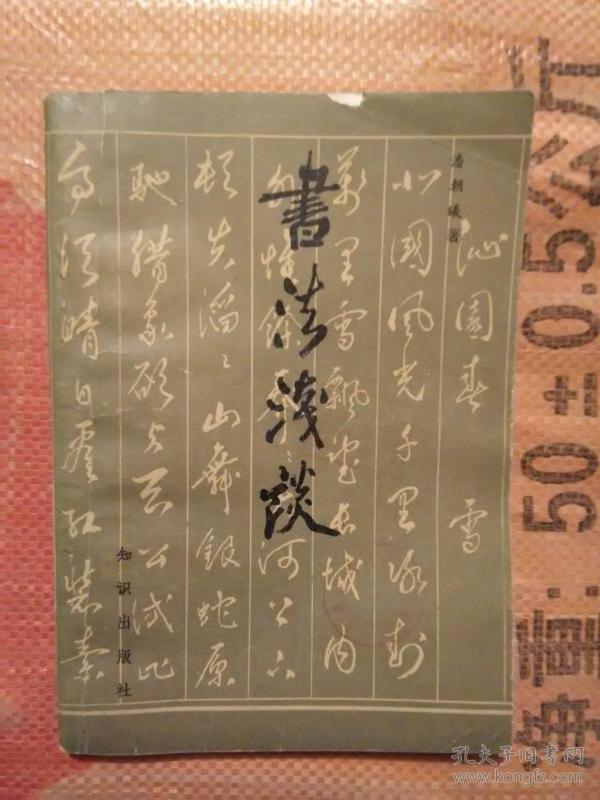 潘朝曦著
書法淺談
知识出版社
沁園春 雪
北國風光千里冰封
萬里雪飄望長城内
外惟餘莽河上下
頓失滔〻山舞銀蛇原
馳臘象欲与天公试比
高须晴日看红裝素
净重: 50±0.5公斤
孔夫子旧书网
www.kongfz.com